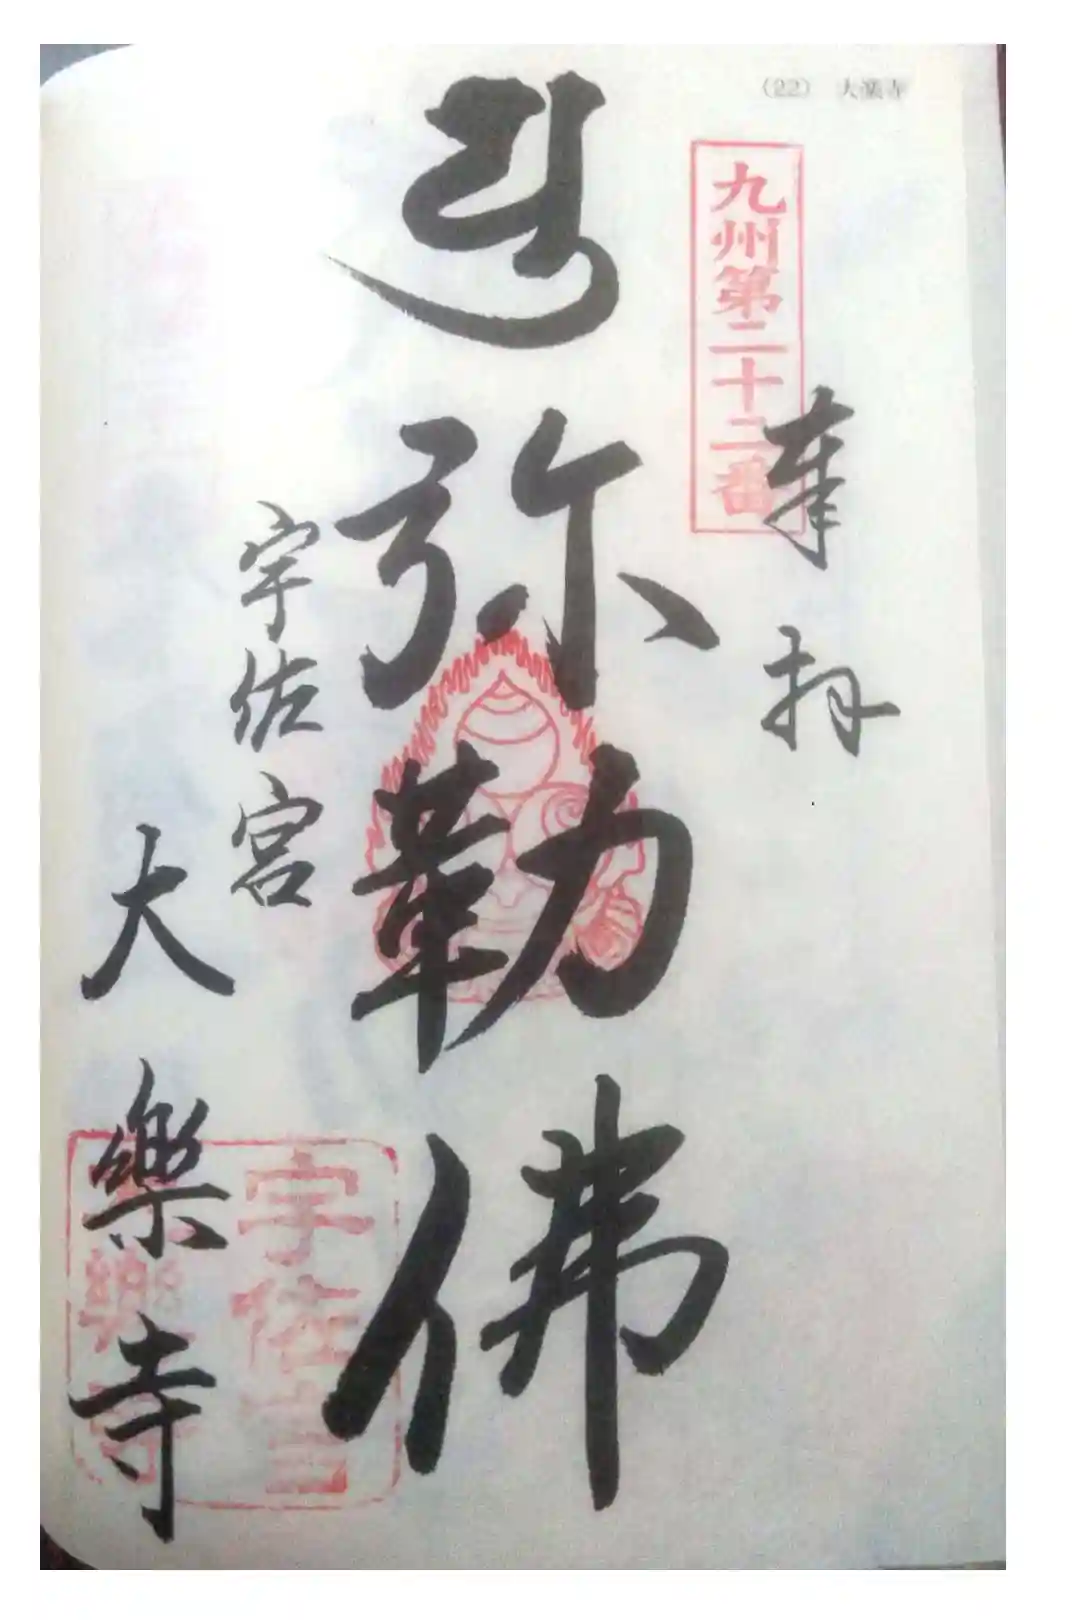 (22) 大楽寺
奉拝
九州第二十二番
弥勒佛
宇佐宮
大樂寺
宇佐宮
大樂寺